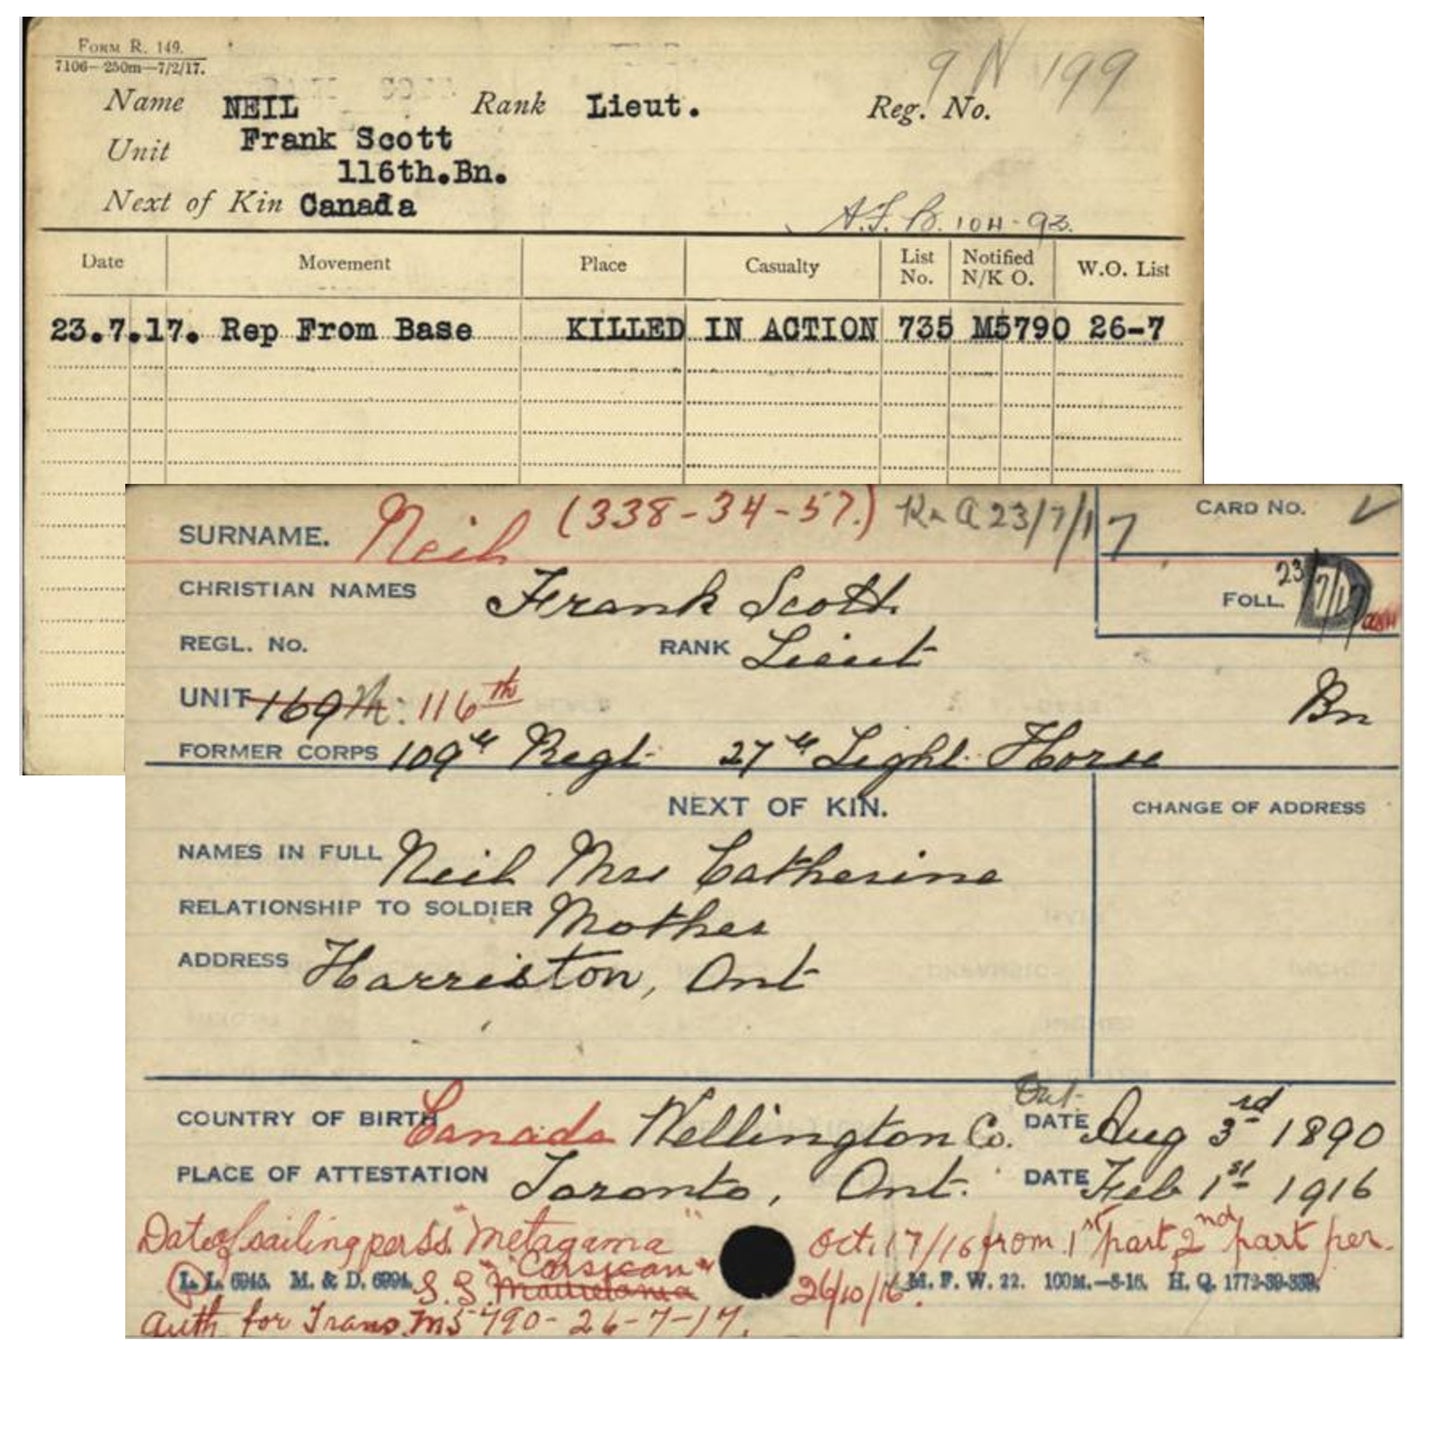 FORM R. 149.
7106—250m—7/2/17.
9 N 199
Name NEIL Rank Lieut. Reg. No.
Frank Scott
Unit 116th.Bn.
Next of Kin Canada
A.F.B. 104-93.
Date Movement Place Casualty List No. Notified N/K O. W.O. List
23.7.17. Rep From Base KILLED IN ACTION 735 M5790 26-7
SURNAME. Neil (338-34-57.) 23/7/17 CARD NO.
CHRISTIAN NAMES Frank Scott. FOLL. 23/7/17
REGL. NO. RANK Lieut
UNIT 169th: 116th Bn
FORMER CORPS 109th Regt. 27th Light Horse
NEXT OF KIN. CHANGE OF ADDRESS
NAMES IN FULL Neil Mrs Catherine
RELATIONSHIP TO SOLDIER Mother
ADDRESS Harriston, Ont
COUNTRY OF BIRTH Canada Wellington Co. Ont. DATE Aug 3rd 1890
PLACE OF ATTESTATION Toronto, Ont. DATE Feb 1st 1916
Date of sailing per SS. "Metagama" Oct. 17/16 from 1st part, 2nd part per.
L. L. 6945. M. & D. 6994. S.S "Mauretania "Corsican" 26/10/16. M. F. W. 22. 100M.—8-16. H. Q. 1772-39-339.
Auth for Trans M5790-26-7-17.